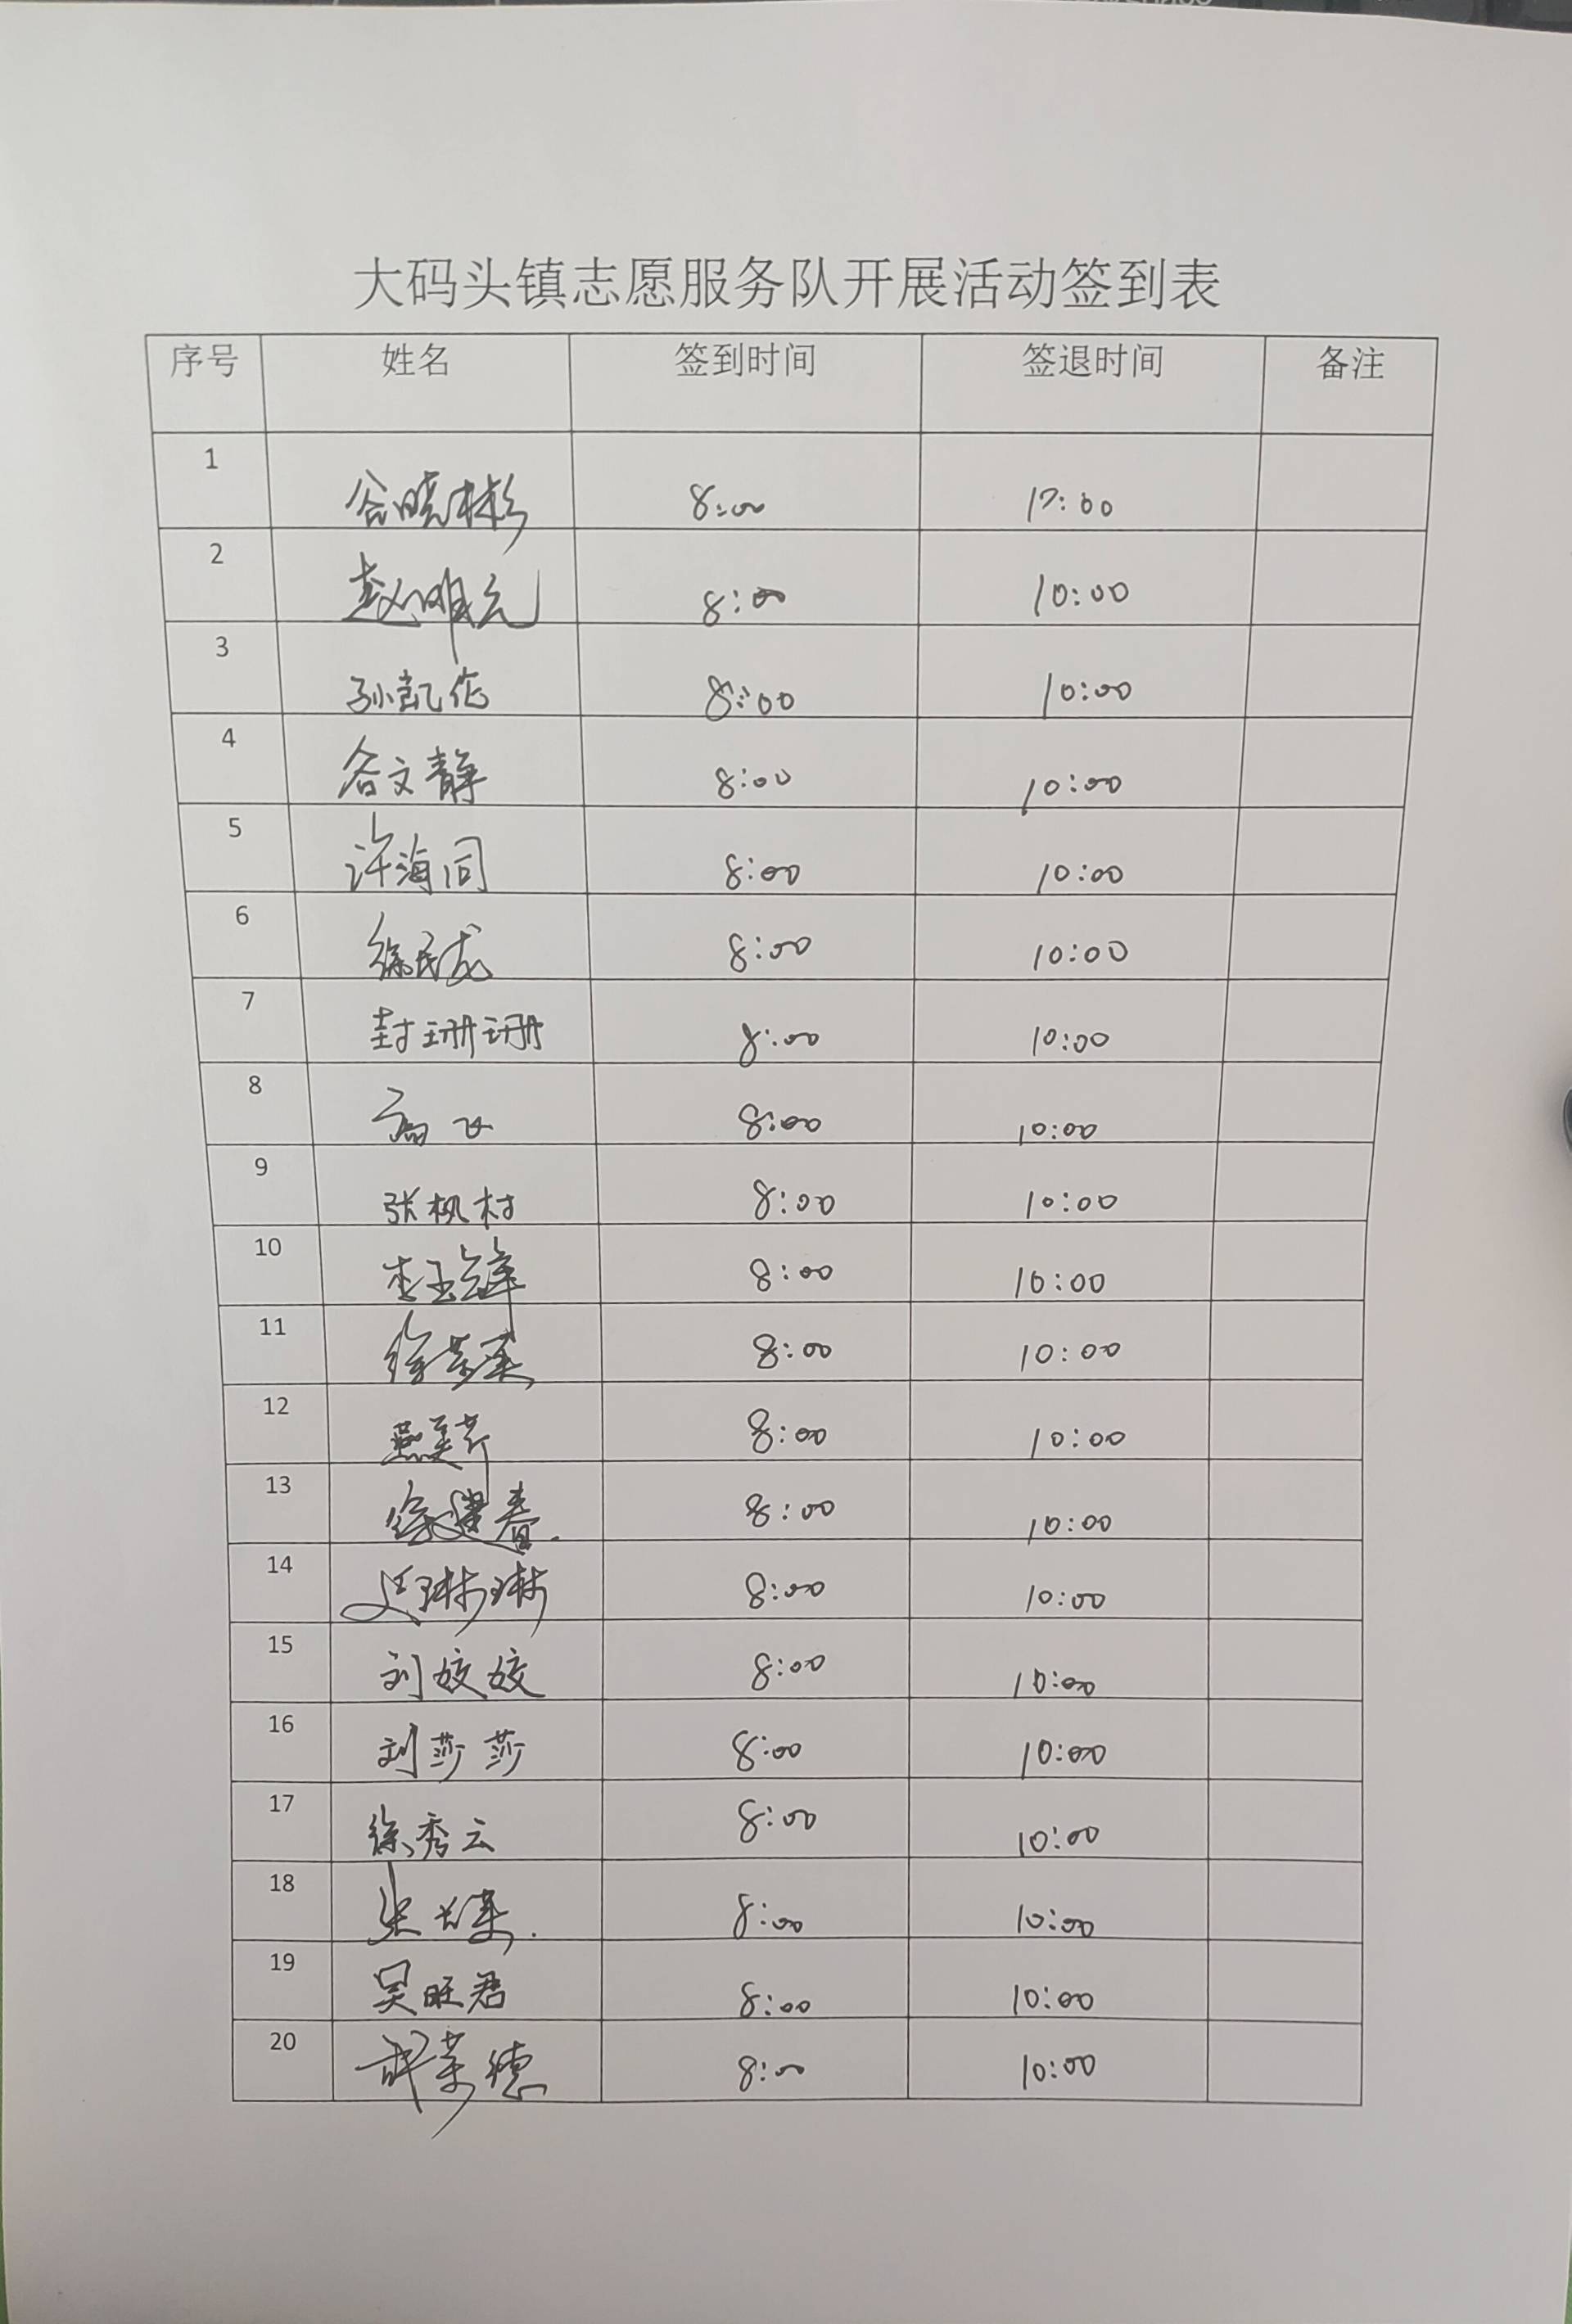 大码头镇志愿服务队开展活动签到表
序号 姓名 签到时间 签退时间 备注
1 谷晓彬 8:00 17:00
2 赵明亮 8:00 10:00
3 孙凯 8:00 10:00
4 谷文静 8:00 10:00
5 许海同 8:00 10:00
6 徐民龙 8:00 10:00
7 封珊珊 8:00 10:00
8 高飞 8:00 10:00
9 张枫村 8:00 10:00
10 李玉锋 8:00 10:00
11 徐 8:00 10:00
12 燕美芹 8:00 10:00
13 徐建春 8:00 10:00
14 琳琳 8:00 10:00
15 刘姣姣 8:00 10:00
16 刘莎莎 8:00 10:00
17 徐秀云 8:00 10:00
18 8:00 10:00
19 吴旺君 8:00 10:00
20 荣德 8:00 10:00